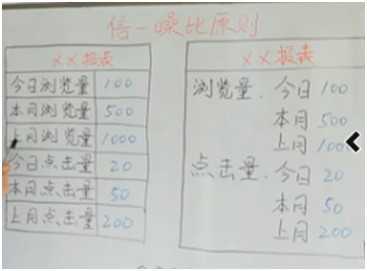 信-噪比原则
××报表
今日浏览量 100
本月浏览量 500
上月浏览量 1000
今日点击量 20
本月点击量 50
上月点击量 200
××报表
浏览量. 今日 100
本月 500
上月 100
点击量. 今日 20
本月 50
上月 200